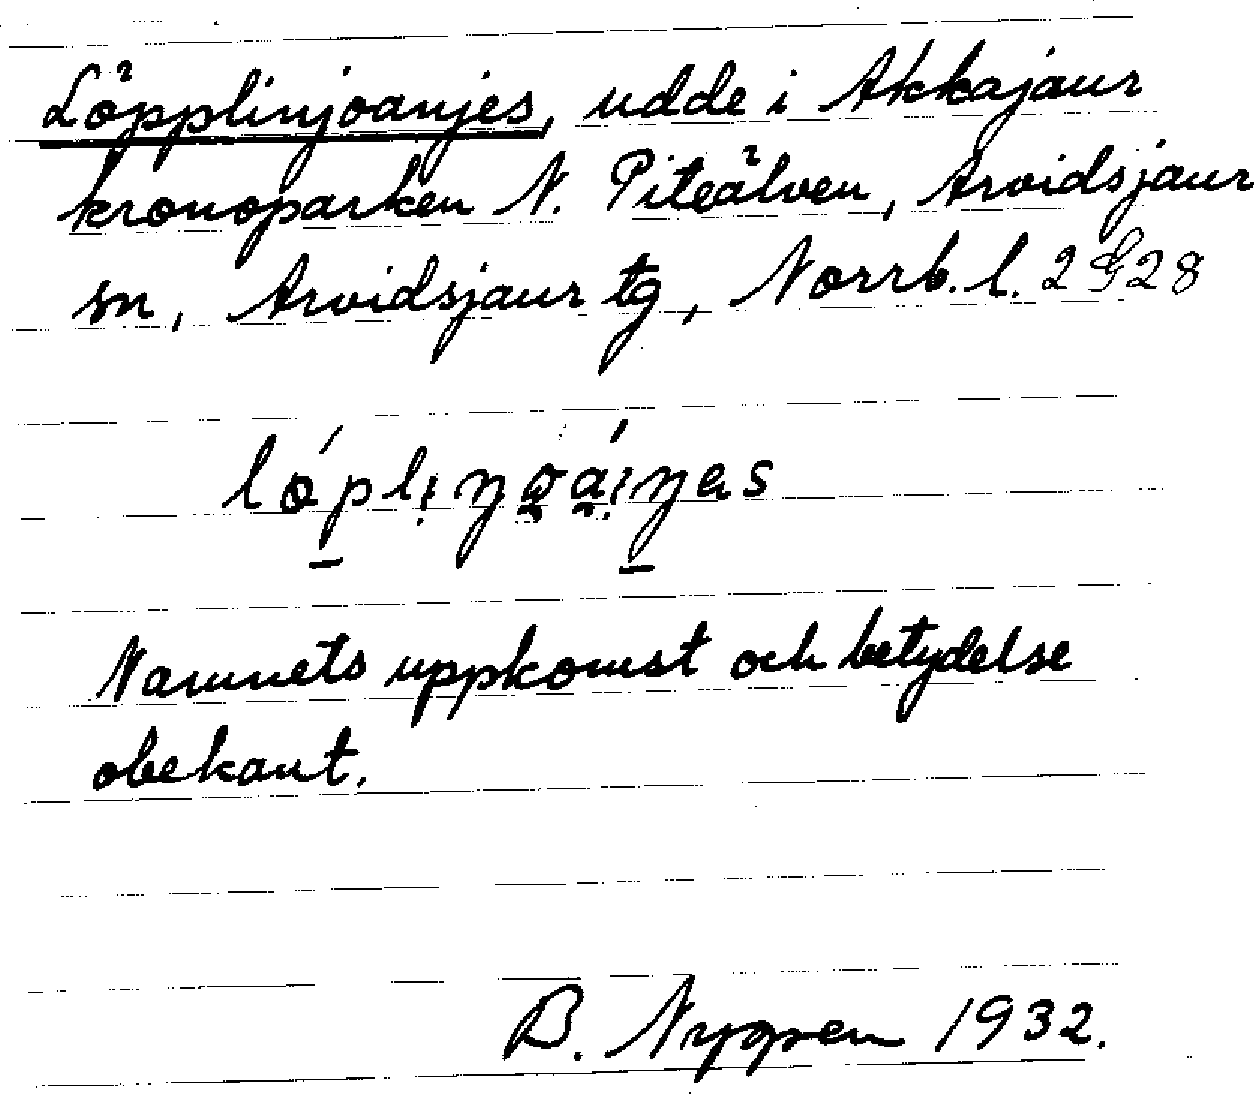 Löpplinjoanjes, udde i Akkajaur
kronoparken N. Piteälven, Arvidsjaur
sn, Arvidsjaur tg, Norrb. l. 2 G 28
Namnets uppkomst och betydelse
obekant.
B. Nygren 1932.